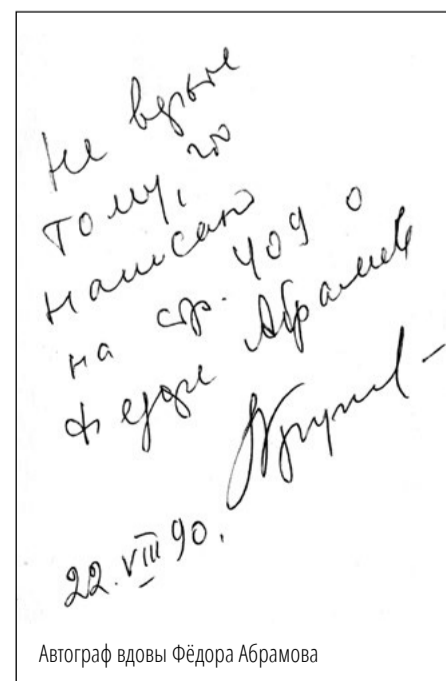 Не верьте
тому, что
написано
на стр. 409 о
Федоре Абрамове
22.VIII 90.
Автограф вдовы Фёдора Абрамова